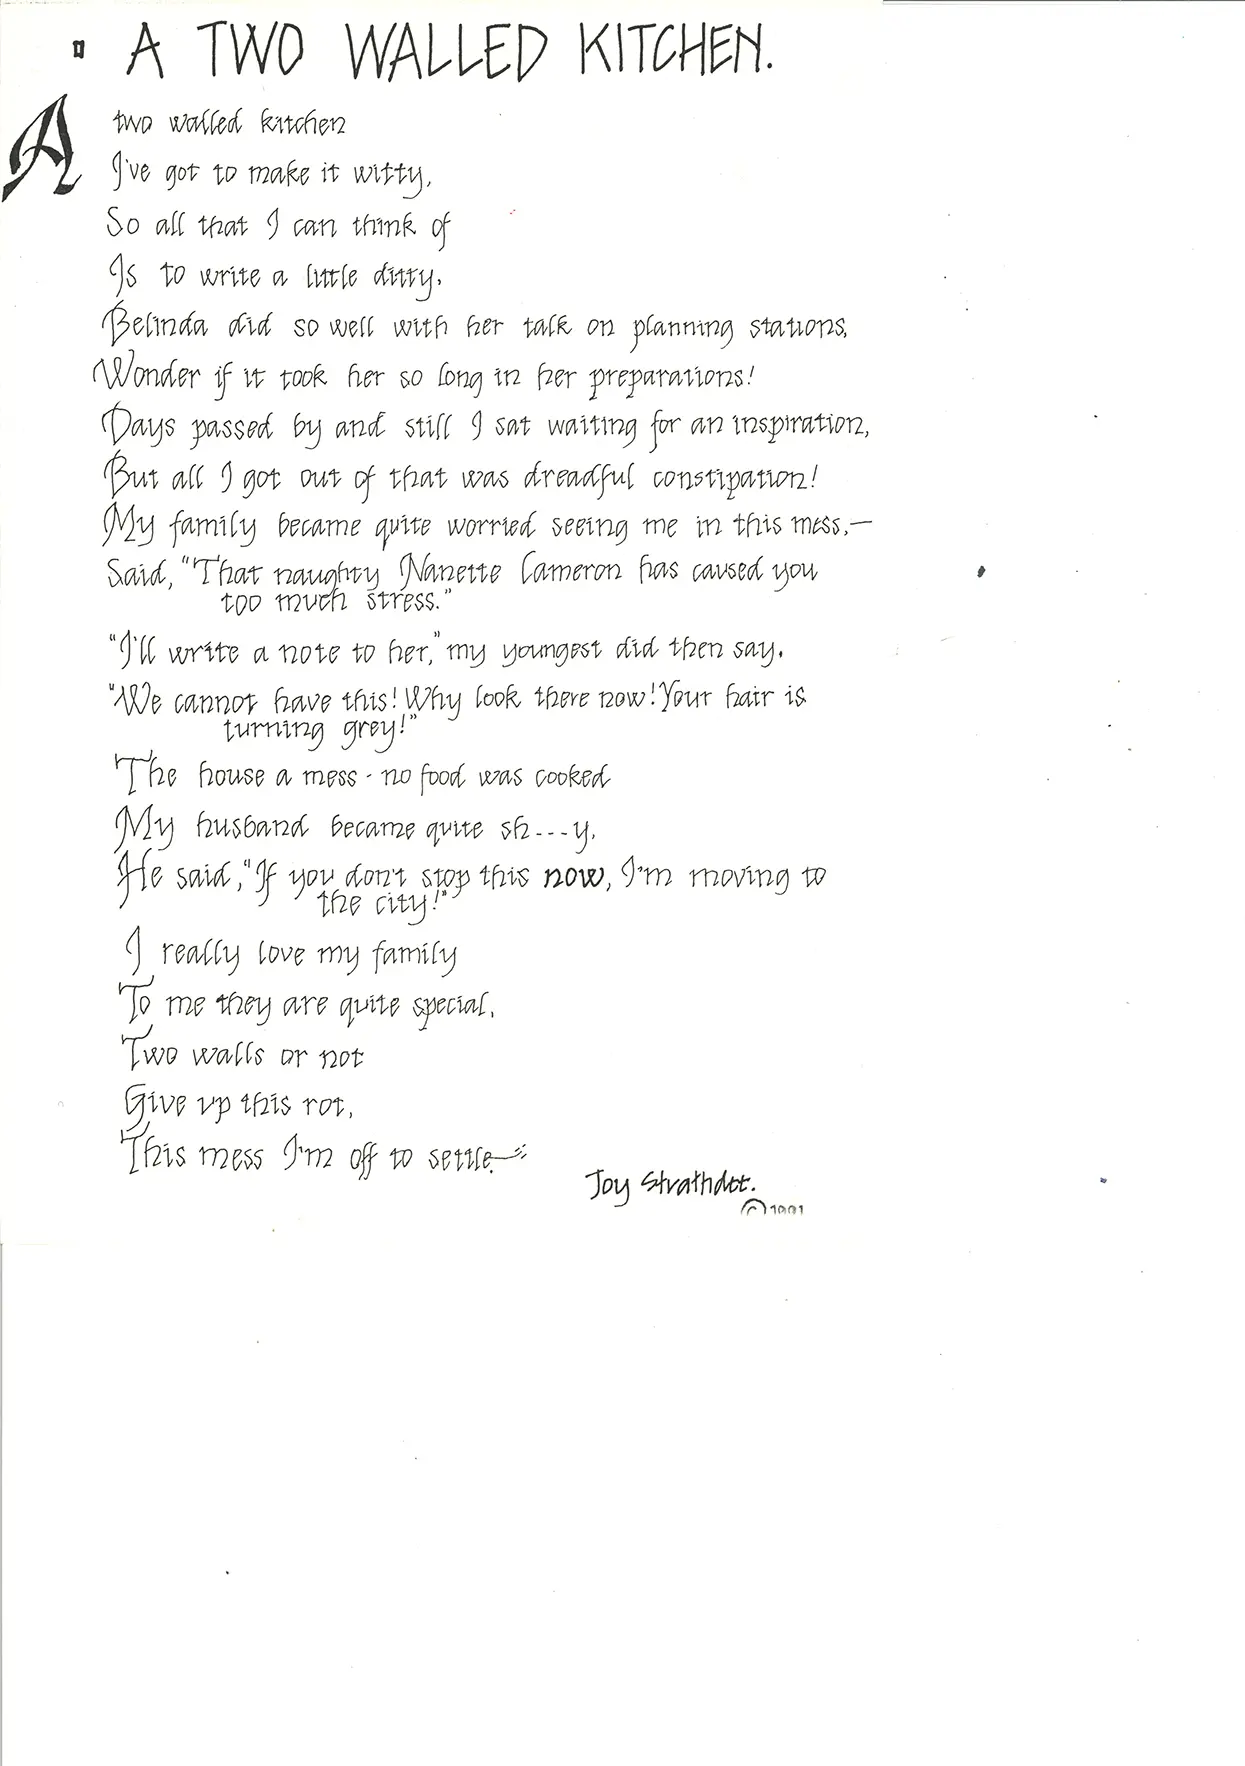 A TWO WALLED KITCHEN.
A two walled kitchen
I've got to make it witty,
So all that I can think of
Is to write a little ditty.
Belinda did so well with her talk on planning stations,
Wonder if it took her so long in her preparations!
Days passed by and still I sat waiting for an inspiration,
But all I got out of that was dreadful constipation!
My family became quite worried seeing me in this mess,—
Said, "That naughty Nanette Cameron has caused you
too much stress."
"I'll write a note to her," my youngest did then say.
"We cannot have this! Why look there now! Your hair is
turning grey!"
The house a mess - no food was cooked
My husband became quite sh---y.
He said, "If you don't stop this now, I'm moving to
the city!"
I really love my family
To me they are quite special,
Two walls or not
Give up this rot,
This mess I'm off to settle.
Joy Strathdee.
© 1991